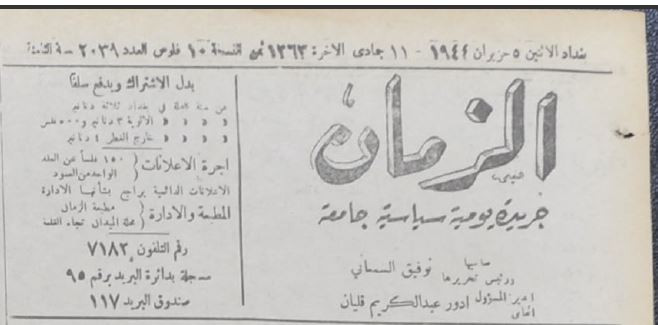 بغداد الاثنين ٥ حزيران ١٩٤٤ - ١١ جمادى الاخرة ١٣٦٣ ثمن النسخة ١٠ فلوس العدد ٢٠٣٩ سنة الثامنة
الزمان
جريدة يومية سياسية جامعة
صاحبها ورئيس تحريرها توفيق السمعاني
المدير المسؤول ادور عبدالكريم قليان
بدل الاشتراك ويدفع سلفاً
عن سنة كاملة في بغداد ثلاثة دنانير
« « « الالوية ٣ دنانير و٥٠٠ فلس
« « « خارج القطر ٤ دنانير
اجرة الاعلانات ( ١٥٠ فلساً عن العقد الواحد من العمود
الاعلانات الدائمية يراجع بشأنها الادارة
المطبعة والادارة ( مطبعة الزمان محلة الميدان تجاه القلعة
رقم التلفون ٧١٨٣
مسجلة بدائرة البريد برقم ٩٥
صندوق البريد ١١٧